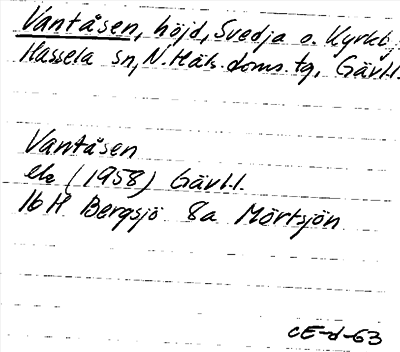 Vantåsen, höjd, Svedja o. Kyrkb.
Hassela sn, N. Häls. doms. tg, Gävl.l.
Vantåsen
ek (1958) Gävl.l.
16 H Bergsjö 8a Mörtsjön
CE-d-63